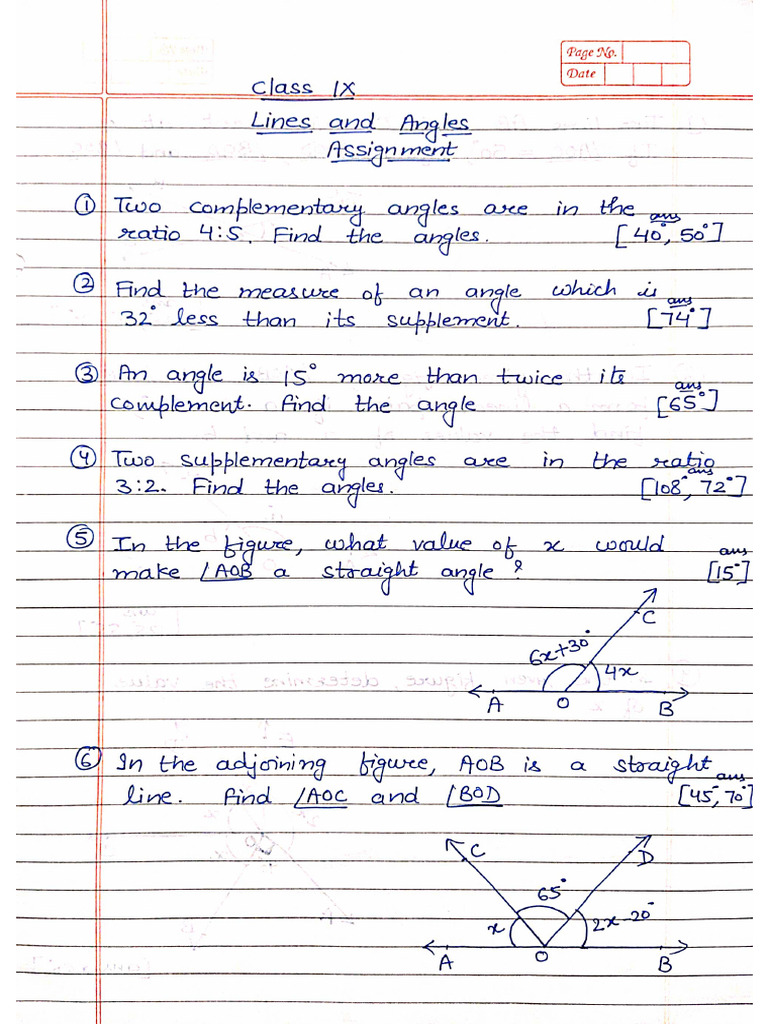 Page No.
Date
Class IX
Lines and Angles
Assignment
① Two complementary angles are in the
ratio 4:5. Find the angles. ans [40°, 50°]
② Find the measure of an angle which is
32° less than its supplement. ans [74°]
③ An angle is 15° more than twice its
complement. Find the angle ans [65°]
④ Two supplementary angles are in the ratio
3:2. Find the angles. ans [108°, 72°]
⑤ In the figure, what value of x would
make ∠AOB a straight angle? ans [15°]
C
6x+30°
4x
A O B
⑥ In the adjoining figure, AOB is a straight
line. Find ∠AOC and ∠BOD ans [45°, 70°]
C D
65°
x 2x-20°
A O B